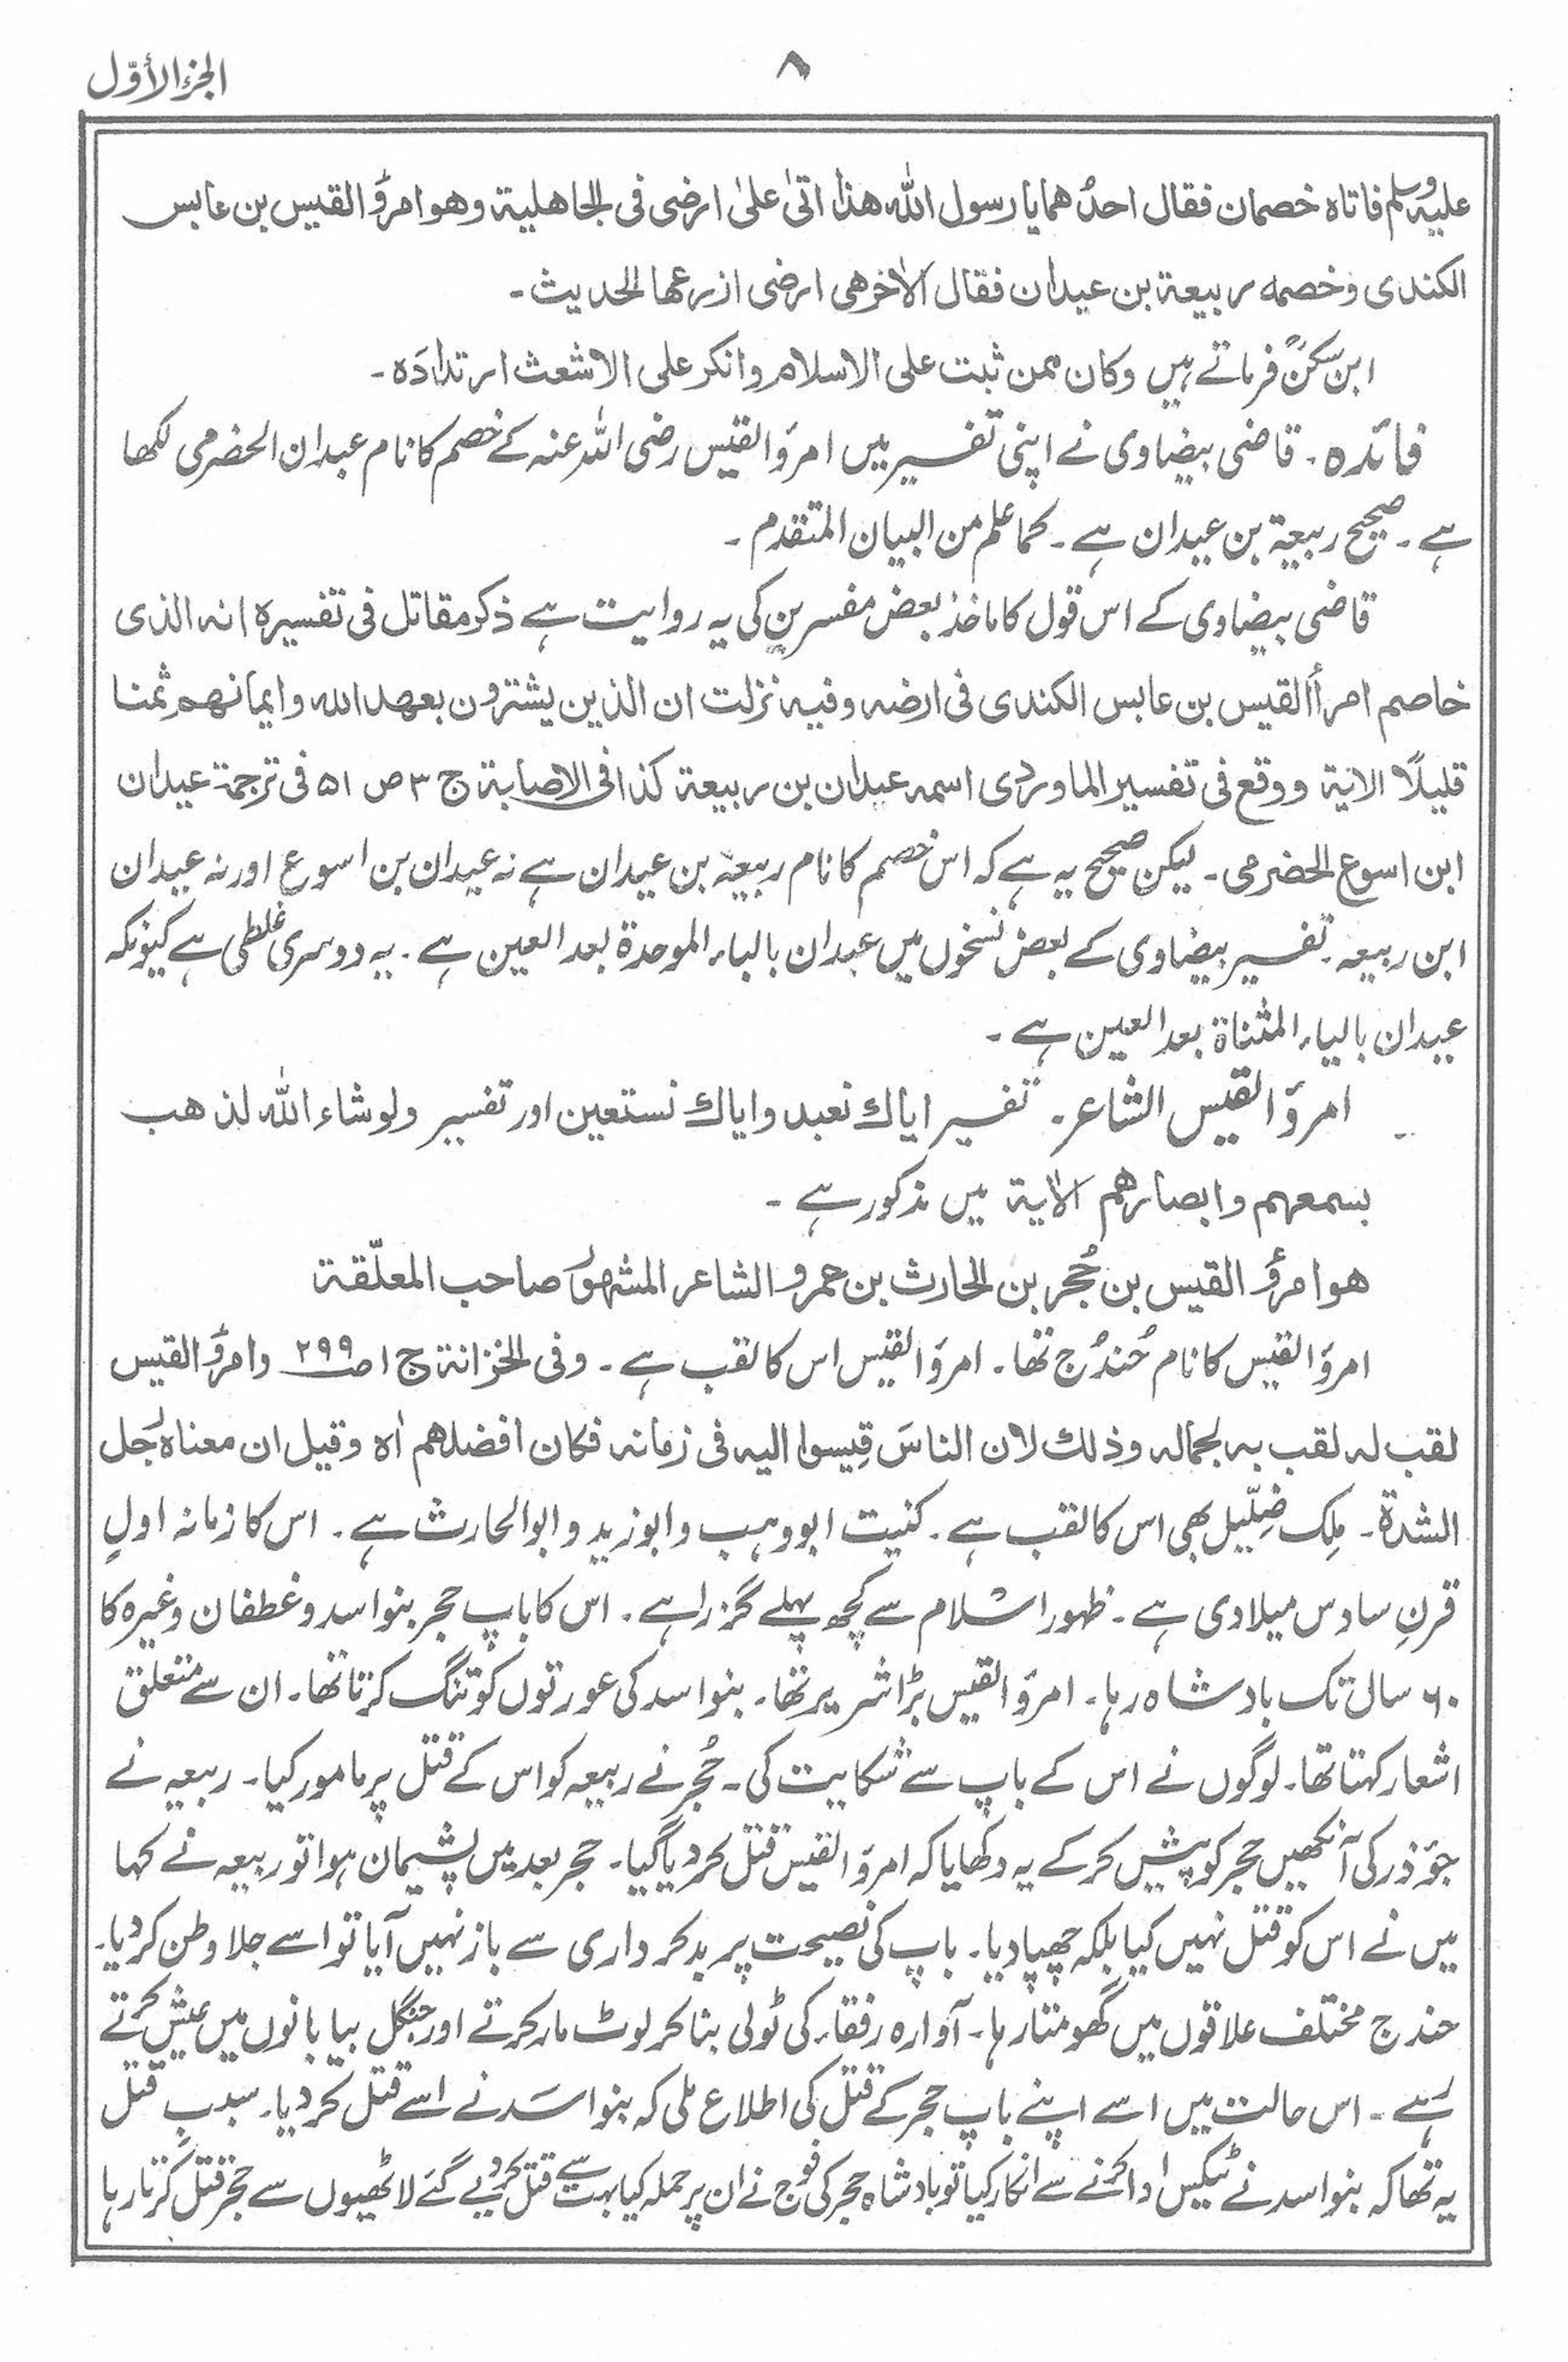 الجزء الأوّل
۸
علیہ وسلم فاتاہ خصمان فقال احدُھما یا رسول اللہ ھذا اتیٰ علیٰ ارضی فی الجاھلیۃ وھو امرؤ القیس بن عابس
الکندی وخصمہ ربیعۃ بن عیدان فقال الاٰخر ھی ارضی ازرعھا الحدیث۔
ابن سکنؒ فرماتے ہیں وکان ممن ثبت علی الاسلام وانکر علی الاشعث ارتدادَہ۔
فائدہ۔ قاضی بیضاوی نے اپنی تفسیر میں امرؤ القیس رضی اللہ عنہ کے خصم کا نام عبدان الحضرمی لکھا
ہے۔ صحیح ربیعۃ بن عیدان ہے۔ کما علم من البیان المتقدم۔
قاضی بیضاوی کے اس قول کا ماخذ بعض مفسرین کی یہ روایت ہے ذکر مقاتل فی تفسیرہ انہ الذی
خاصم امرأ القیس بن عابس الکندی فی ارضہ وفیہ نزلت ان الذین یشترون بعھد اللہ وایمانھم ثمنا
قلیلًا الاٰیۃ ووقع فی تفسیر الماوردی اسمہ عبدان بن ربیعۃ کذا فی الاصابۃ ج ۳ ص ۵۱ فی ترجمۃ عیدان
ابن اسوع الحضرمی۔ لیکن صحیح یہ ہے کہ اس خصم کا نام ربیعۃ بن عیدان ہے نہ عیدان بن اسوع اور نہ عیدان
ابن ربیعہ۔ تفسیر بیضاوی کے بعض نسخوں میں عبدان بالباء الموحدۃ بعد العین ہے۔ یہ دوسری غلطی ہے کیونکہ
عیدان بالیاء المثناۃ بعد العین ہے۔
امرؤ القیس الشاعر۔ تفسیر ایاك نعبد وایاك نستعین اور تفسیر ولو شاء اللہ لذھب
بسمعھم وابصارھم الاٰیۃ میں مذکور ہے۔
ھو امرؤ القیس بن حُجر بن الحارث بن عمرو الشاعر المشہور صاحب المعلّقۃ
امرؤ القیس کا نام حُندُج تھا۔ امرؤ القیس اس کا لقب ہے۔ وفی الخزانۃ ج ۱ ص ۲۹۹ وامرؤ القیس
لقب لہ لقب بہ لجمالہ وذلك لان الناسَ قِیسوا الیہ فی زمانہ فکان افضلھم اٰہ وقیل ان معناہ رجل
الشدۃ۔ مِلک ضِلّیل بھی اس کا لقب ہے۔ کنیت ابو وہب وابو زید وابو الحارث ہے۔ اس کا زمانہ اولِ
قرنِ سادس میلادی ہے۔ ظہور اسلام سے کچھ پہلے گزرا ہے۔ اس کا باپ حجر بنو اسد وغطفان وغیرہ کا
۶۰ سال تک بادشاہ رہا۔ امرؤ القیس بڑا شریر تھا۔ بنو اسد کی عورتوں کو تنگ کرتا تھا۔ ان سے متعلق
اشعار کہتا تھا۔ لوگوں نے اس کے باپ سے شکایت کی۔ حُجر نے ربیعہ کو اس کے قتل پر مامور کیا۔ ربیعہ نے
جؤذر کی آنکھیں حجر کو پیش کر کے یہ دکھایا کہ امرؤ القیس قتل کر دیا گیا۔ حجر بعد میں پشیمان ہوا تو ربیعہ نے کہا
میں نے اس کو قتل نہیں کیا بلکہ چھپا دیا۔ باپ کی نصیحت پر بدکرداری سے باز نہیں آیا تو اسے جلا وطن کر دیا۔
حندج مختلف علاقوں میں گھومتا رہا۔ آوارہ رفقاء کی ٹولی بنا کر لوٹ مار کرتے اور جنگل بیابانوں میں عیش کرتے
رہے۔ اس حالت میں اسے اپنے باپ حجر کے قتل کی اطلاع ملی کہ بنو اسَد نے اسے قتل کر دیا۔ سببِ قتل
یہ تھا کہ بنو اسد نے ٹیکس ادا کرنے سے انکار کیا تو بادشاہ حجر کی فوج نے ان پر حملہ کیا بہت سے قتل کر دیے گئے لاٹھیوں سے حجر قتل کرتا رہا